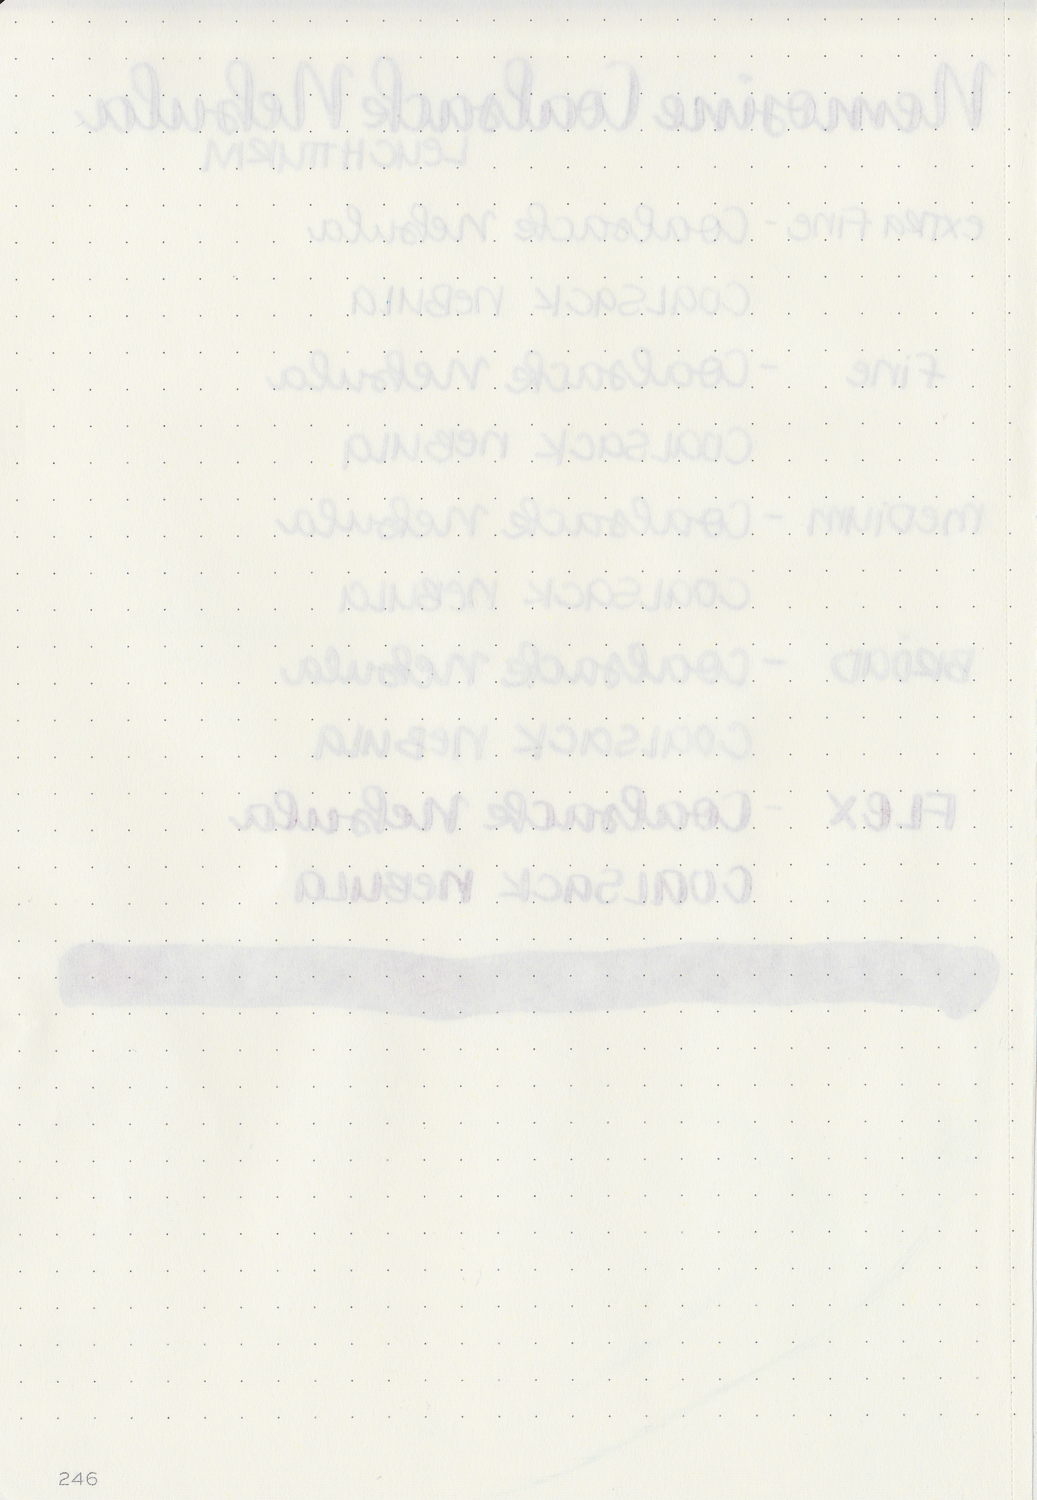 Nemosine Coalsack Nebula
LEUCHTTURM
EXTRA FINE - Coalsack Nebula
COALSACK NEBULA
FINE - Coalsack Nebula
COALSACK NEBULA
MEDIUM - Coalsack Nebula
COALSACK NEBULA
BROAD - Coalsack Nebula
COALSACK NEBULA
FLEX - Coalsack Nebula
COALSACK NEBULA
246